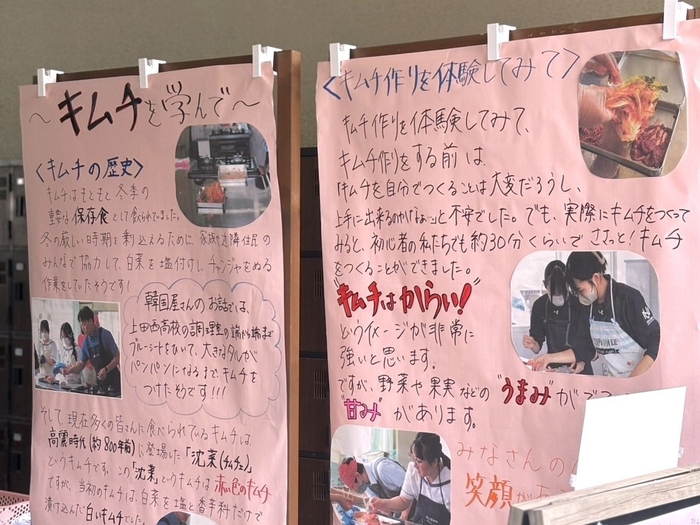 ～キムチを学んで～
〈キムチの歴史〉
キムチはもともと冬季の
重要な保存食として食べられてました。
冬の厳しい時期を乗り込えるために、家族や近隣住民の
みんなで協力して、白菜を塩付けし、チャンジャをぬる
作業をしてたそうです！
韓国屋さんのお話では、
上田西高校の調理室の端から端まで
ブルーシートをひいて、大きなタルが
パンパンになるまで、キムチを
つけたそうです!!!
そして、現在多くの皆さんに食べられているキムチは、
高麗時代(約800年前)に登場した「沈菜(チムチェ)」
というキムチです。この「沈菜」というキムチは赤い色のキムチ
ですが、当初のキムチは、白菜を塩と香辛料だけで
漬け込んだ白いキムチでした。
〈キムチ作りを体験してみて〉
キムチ作りを体験してみて、
キムチ作りをする前は、
「キムチを自分でつくることは大変だろうし、
上手に出来るのかなぁ…」と不安でした。でも、実際にキムチをつくって
みると、初心者の私たちでも約30分くらいでささっと！キムチ
をつくることができました。
"キムチはからい！"
というイメージが非常に
強いと思います。
ですが、野菜や果実などの"うまみ"がでて
"甘み"があります。
みなさんの
笑顔が